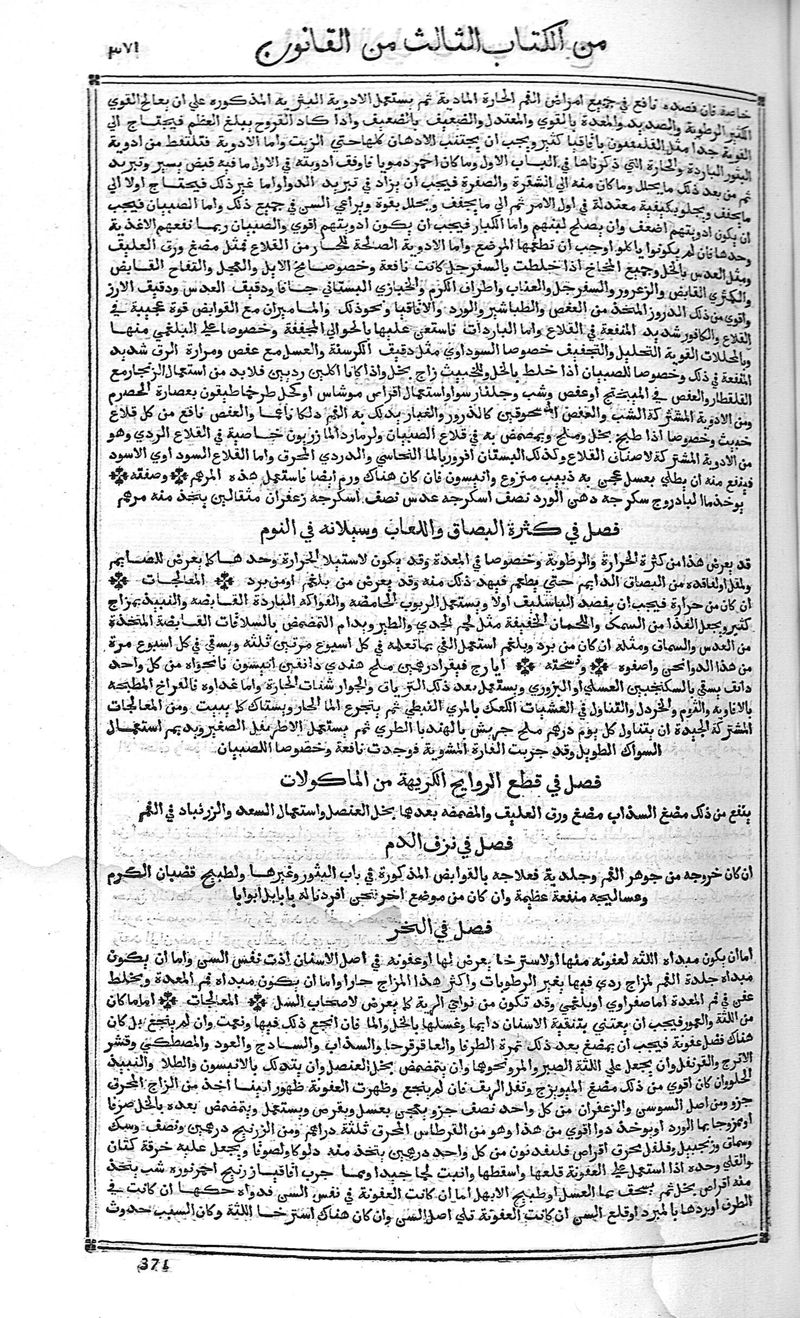 من الكتاب الثالث من القانون ٣٧١
خاصة فان فصده نافع في جميع امراض الفم الحارة المادية ثم يستعمل الادوية البثرية المذكوره علي ان يعالج القوي
الكثير الرطوبة والصديد والمعدة بالقوي والمعتدل والضعيف بالضعيف واذا كاد القروح يبلغ العظم فيحتاج الي
القوية جدا مثل الفلدفيون باقاقيا كثير ويجب ان يجتنب الادهان كلها حتي الزيت واما الادوية فتلتقط من ادوية
البثور الباردة والحارة التي ذكرناها في الباب الاول وما كان احمر دمويا فاوفق ادويته في الاول ما فيه قبض يسير وتبريد
ثم من بعد ذلك ما يحلل وما كان منه الي الشقرة والصفرة فيجب ان يزاد في تبريد الدوا واما غير ذلك فيحتاج اولا الي
ما يجفف ويجلو بكيفية معتدلة في اول الامر ثم الي ما يجفف ويحلل بقوة ويراعي السن في جميع ذلك واما الصبيان فيجب
ان يكون ادويتهم اضعف وان يصلح لبنهم واما الكبار فيجب ان يكون ادويتهم اقوي والصبيان ربما نفعهم الاغذية
وحدها فان لم يكونوا ياكلو اوجب ان تطعمها المرضع واما الادوية الصالحة للحار من القلاع فمثل مضغ ورق العليق
ومثل العدس بالخل وجميع المخاخ اذا خلطت بالسفرجل كانت نافعة وخصوصا مخ الايل والعجل والتفاح القابض
والكمثري القابض والزعرور والسفرجل والعناب واطراف الكرم والخبازي البستاني جافا ودقيق العدس ودقيق الارز
واقوي من ذلك الذرور المتخذ من العفص والطباشير والورد والاقاقيا ونحو ذلك والماميران مع القوابض قوة عجيبة في
القلاع والكافور شديد المنفعة في القلاع واما الباردات فاستعن عليها بالجوالي المجففة وخصوصا علي البلغمي منها
وبالمحللات القوية التحليل والتجفيف خصوصا السوداوي مثل دقيق الكرسنة والعسل مع عفص ومرارة الرق شديد
المنفعة في ذلك وخصوصا للصبيان اذا خلط بالخل وللخبيث زاج بخل واذا كانا اكلين رديين فلا بد من استعمال الزنجار مع
القلقطار والعفص في الميبختج او عفص وشب وجلنار سوا واستعمال اقراص موشاس او كحل طرخماطيقون بعصارة الحصرم
ومن الادوية المشتركة الشب والعفص المسحوقين كالذرور والغبار يدلك به الفم دلكا ناعما والعفص نافع من كل قلاع
خبيث وخصوصا اذا طبخ بخل وملح ويمضمض به في قلاع الصبيان ولرماد المازريون خاصية في القلاع الردي وهو
من الادوية المشتركة لاصناف القلاع وكذلك البستان افروز بالما النحاسي والدردي المحرق واما القلاع السوداوي الاسود
فينفع منه ان يطلي بعسل عجن به ذبيب منزوع وانيسون فان كان هناك ورم ايضا فاستعمل هذه المرهم وصفته
يوخذ ما البادروج سكرجه دهن الورد نصف اسكرجه عدس نصف اسكرجه زعفران مثقالين يتخذ منه مرهم
فصل في كثرة البصاق واللعاب وسيلانه في النوم
قد يعرض هذا من كثرة الحرارة والرطوبة وخصوصا في المعدة وقد يكون لاستيلا الحرارة وحدها كما يعرض للصايم
ولمقل الغذا من البصاق الدايم حتي يطعم فيهد ذلك منه وقد يعرض من بلغم او من برد المعالجات
ان كان من حرارة فيجب ان يفصد الباسليق اولا ويستعمل الربوب الحامضه والفواكه الباردة القابضه والنبيذ بمزاج
كثير ويجعل الغذا من السمك واللحمان الخفيفة مثل لحم الجدي والطير ويدام التمضمض بالسلاقات القابضة المتخذة
من العدس والسماق ومثله ان كان من برد وبلغم استعمل القي بما تعلمه في كل اسبوع مرتين ثلثه ويسقي في كل اسبوع مرة
من هذا الدوا نحن واصفوه ونسخته ايارج فيقرا درهمين ملح هندي دانقين انيسون نانخواه من كل واحد
دانف يسقي بالسكنجبين العسلي او البزوري ويستعمل بعد ذلك الترياقات والجوارشنات الحارة واما غذاوه فالفراخ المطبخه
بالافاويه والثوم والخردل والتناول في العشيات الكعك بالمري النبطي ثم يتجرع الما الحار ويستاك كما يبيت ومن المعالجات
المشتركة الجيدة ان يتناول كل يوم درهم ملح جريش بالهندبا الطري ثم يستعمل الاطريفل الصغير ويديم استعمال
السواك الطويل وقد جربت الفارة المشوية فوجدت نافعة وخصوصا اللصبيان
فصل في قطع الروايح الكريهة من الماكولات
ينفع من ذلك مضغ السذاب مضغ ورق العليق والمضمضه بعدهما بخل العنصل واستعمال السعد والزرنباد في الفم
فصل في نزف الدم
ان كان خروجه من جوهر الفم وجلدية فعلاجه بالقوابض المذكورة في باب البثور وغيرها ولطبيخ قضبان الكرم
وعساليجه منفعة عظيمة وان كان من موضع اخر فنحن افردنا له بابا بل ابوابا
فصل في البخر
اما ان يكون مبداه اللثه لعفونه منها او لاسترخا يعرض لها او عفونه في اصل الاسنان اذت نفس السن واما ان يكون
مبداه جلدة الفم لمزاج ردي فيها يغير الرطوبات واكثر هذا المزاج حار واما ان يكون مبداه فم المعدة وبخلط
عفن في فم المعدة اما صفراوي او بلغمي وقد تكون من نواحي الرية كما يعرض لاصحاب السل المعالجات اما ما كان
من اللثة والعمور فيجب ان يعتني بتنقية الاسنان دايما وغسلها بالخل والما فان انجع ذلك فيها ونعمت وان لم ينجع بل كان
هناك فضل عفونة فيجب ان يمضغ بعد ذلك ثمرة الطرفا والعاقرقرحا والسذاب والسادج والعود والمصطكي وقشر
الاترج والقرنفل وان يجعل علي اللثة الصبر والمر ونحوهما وان يتمضمض بخل العنصل وان يتدلك بالانيسون والطلا والنبيذ
الحلو وان كان اقوي من ذلك مضغ الميويزج وتفل الريق فان لم ينجع وظهرت العفونة ظهورا بينا اخذ من الزاج المحرق
جزو ومن اصل السوسن والزعفران من كل واحد نصف جزو يعجن بعسل ويقرص ويستعمل ويتمضمض بعده بالخل صرفا
او ممزوجا بما الورد او يوخذ دوا اقوي من هذا وهو من القرطاس المحرق ثلثة دراهم ومن الزرنيخ درهمين ونصف وسك
وسماق وزنجبيل وفلفل محرق اقراص فلدفيون من كل واحد درهمين يتخذ منه دلوكا ولصوقا ويجعل عليه خرقة كتان
والقلي وحده اذا استعمل علي العفونة قلعها واسقطها وانبت لحما جيدا ومما جرب اقاقيا زرنيخ احمر نوره شب يتخذ
منه اقراص بخل ثم يسحق بما العسل او طبيخ الابهل اما ان كانت العفونة في نفس السن فدواه حكها ان كانت في
الطرف او بردها بالمبرد او قلع السن ان كانت العفونة تلي اصل السن وان كان هناك استرخا اللثة وكان السبب حدوث
371